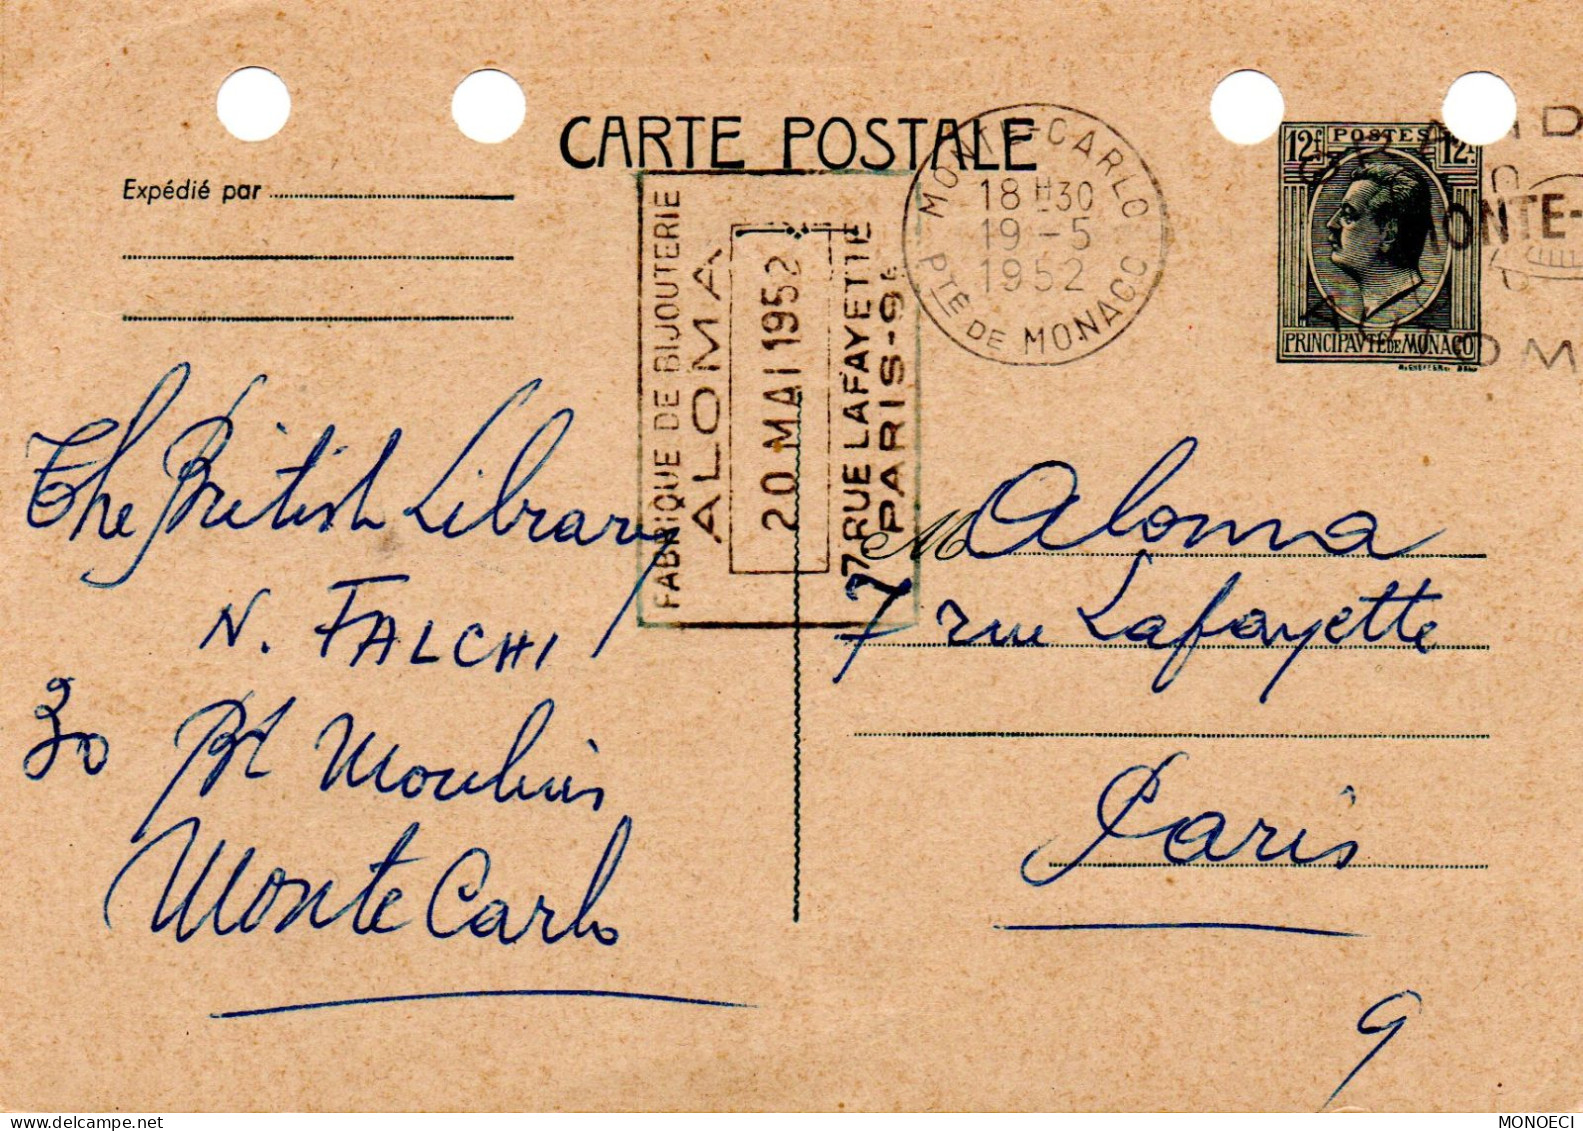 CARTE POSTALE
Expédié par
MONTE-CARLO
18H30
19-5
1952
PTÉ DE MONACO
12F POSTES 12F
PRINCIPAVTÉ DE MONACO
MONTE-
FABRIQUE DE BIJOUTERIE
ALOMA
20 MAI 1952
7 RUE LAFAYETTE
PARIS-9E
The British Library
N. FALCHI
30 Bd Moulins
Monte Carlo
M Aloma
7 rue Lafayette
Paris
9
MONOECI
www.delcampe.net